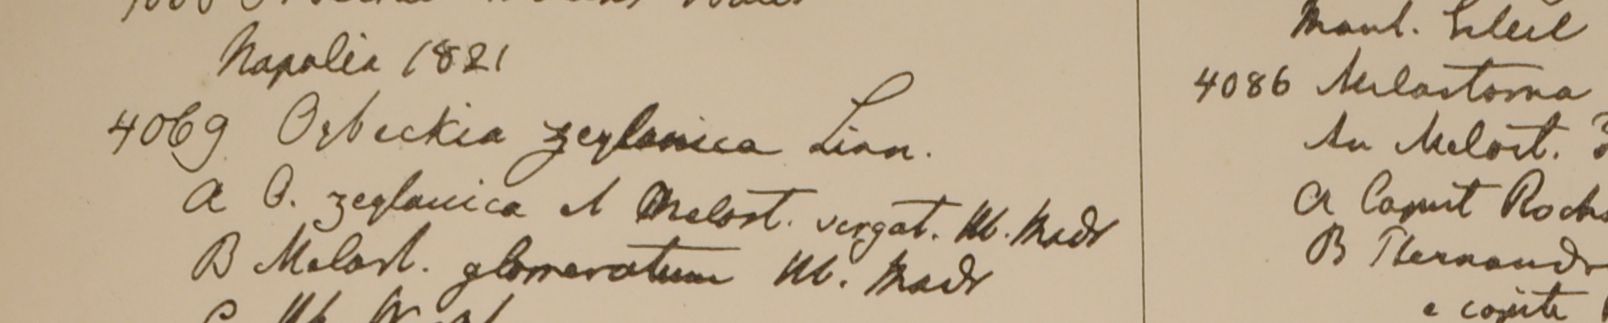 Napalia 1821
4069 Osbeckia zeylanica Linn.
a O. zeylanica et Melast. virgat. Hb. Madr
B Melast. glomeratum Hb. Madr
Mant.
4086 Melastoma
An Melast.
a Caput Rocks
B
e capite